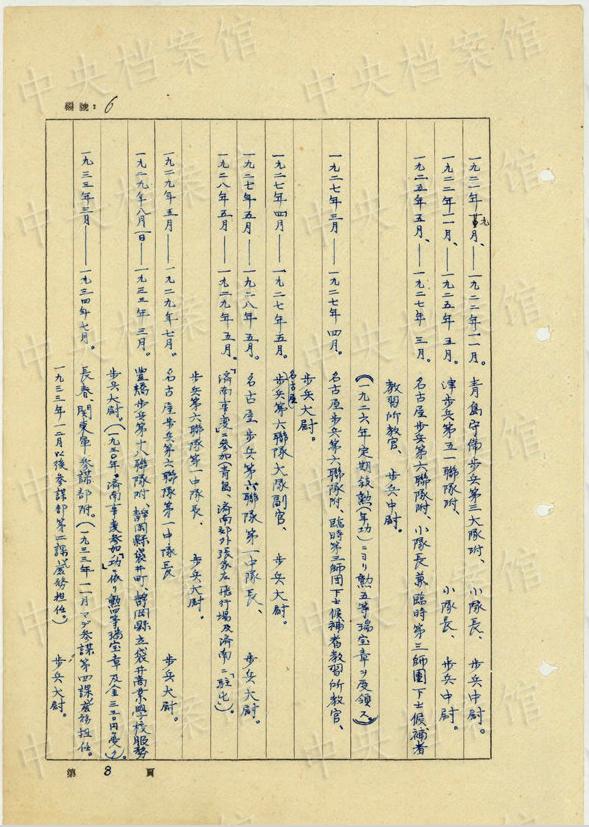 編號：6
一九二一年九月、——一九二二年一一月。 青島守備步兵第三大隊附、 小隊長、 步兵中尉。
一九二二年一一月、——一九二五年五月。 津步兵第五一聯隊附、 小隊長、 步兵中尉。
一九二五年五月、——一九二七年三月。 名古屋步兵第六聯隊附、小隊長兼臨時第三師團下士候補者
教習所教官、 步兵中尉。
(一九二六年定期敍勲(年功)ニヨリ勲五等瑞宝章ヲ受領ス)
一九二七年三月——一九二七年四月。 名古屋步兵第六聯隊附、臨時第三師團下士候補者教習所教官、
步兵大尉。
一九二七年四月——一九二七年五月。 名古屋步兵第六聯隊大隊副官、 步兵大尉。
一九二七年五月——一九二八年五月。 名古屋步兵第六聯隊第一中隊長、 步兵大尉。
一九二八年五月——一九二九年五月。 「濟南事変」ニ参加(青島、濟南郊外張家庄飛行場及濟南ニ駐屯)。
步兵第六聯隊第一中隊長、 步兵大尉。
一九二九年五月——一九二九年七月。 名古屋步兵第六聯隊第一中隊長 步兵大尉。
一九二九年八月一日——一九三三年三月。 豊橋步兵第十八聯隊附、靜岡縣袋井町、靜岡縣立袋井商業學校服務
步兵大尉。(一九三〇年「濟南事変参加」ノ功ニ依リ勲四等瑞宝章及金三三〇円受ク)
一九三三年三月——一九三四年七月。 長春、関東軍参謀部附。(一九三三年一一月マデ参謀部第四課業務担任。
一九三三年一二月以後参謀部第二課業務担任。) 步兵大尉。
第 8 頁
中央档案馆